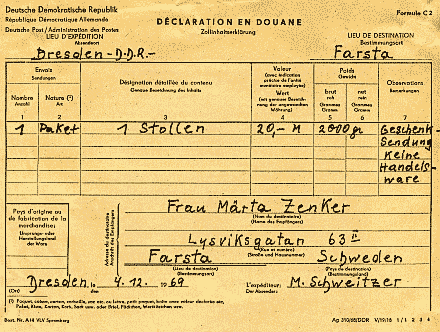 Deutsche Demokratische Republik
République Démocratique Allemande
Deutsche Post / Administration des Postes
Formule C 2
DÉCLARATION EN DOUANE
Zollinhaltserklärung
LIEU D'EXPÉDITION
Absendeort
LIEU DE DESTINATION
Bestimmungsort
Dresden-D.D.R.-
Farsta
Envois
Sendungen
Nombre
Anzahl
Nature (¹)
Art
Désignation détaillée du contenu
Genaue Bezeichnung des Inhalts
Valeur
(avec indication
précise de l'unité
monétaire
employée)
Wert
(mit genauer
Bezeichnung
der angewandten
Währung)
Poids
Gewicht
brut
roh
Grammes
Gramm
net
rein
Grammes
Gramm
Observations
Bemerkungen
1 2 3 4 5 6 7
1 Paket 1 Stollen 20,- M 2000 gr Geschenk-
Sendung
Keine
Handels-
ware
Pays d'origine ou
de fabrication de la
marchandise:
Ursprungs- oder
Herstellungsland
der Ware
Adresse du destinataire
Anschrift des Empfängers
Frau Märta Zenker
(Nom du destinataire)
(Name des Empfängers)
Lysviksgatan 63 II
(Rue et numéro)
(Straße und Hausnummer)
Farsta Schweden
(Lieu de destination)
(Bestimmungsort)
(Pays de destination)
(Bestimmungsland)
Dresden, le 4.12. 1969
(Ort) den
L'expéditeur: M. Schweitzer
Der Absender:
Best. Nr. A 14 VLV Spremberg
Ag 310/68/DDR V/19/18